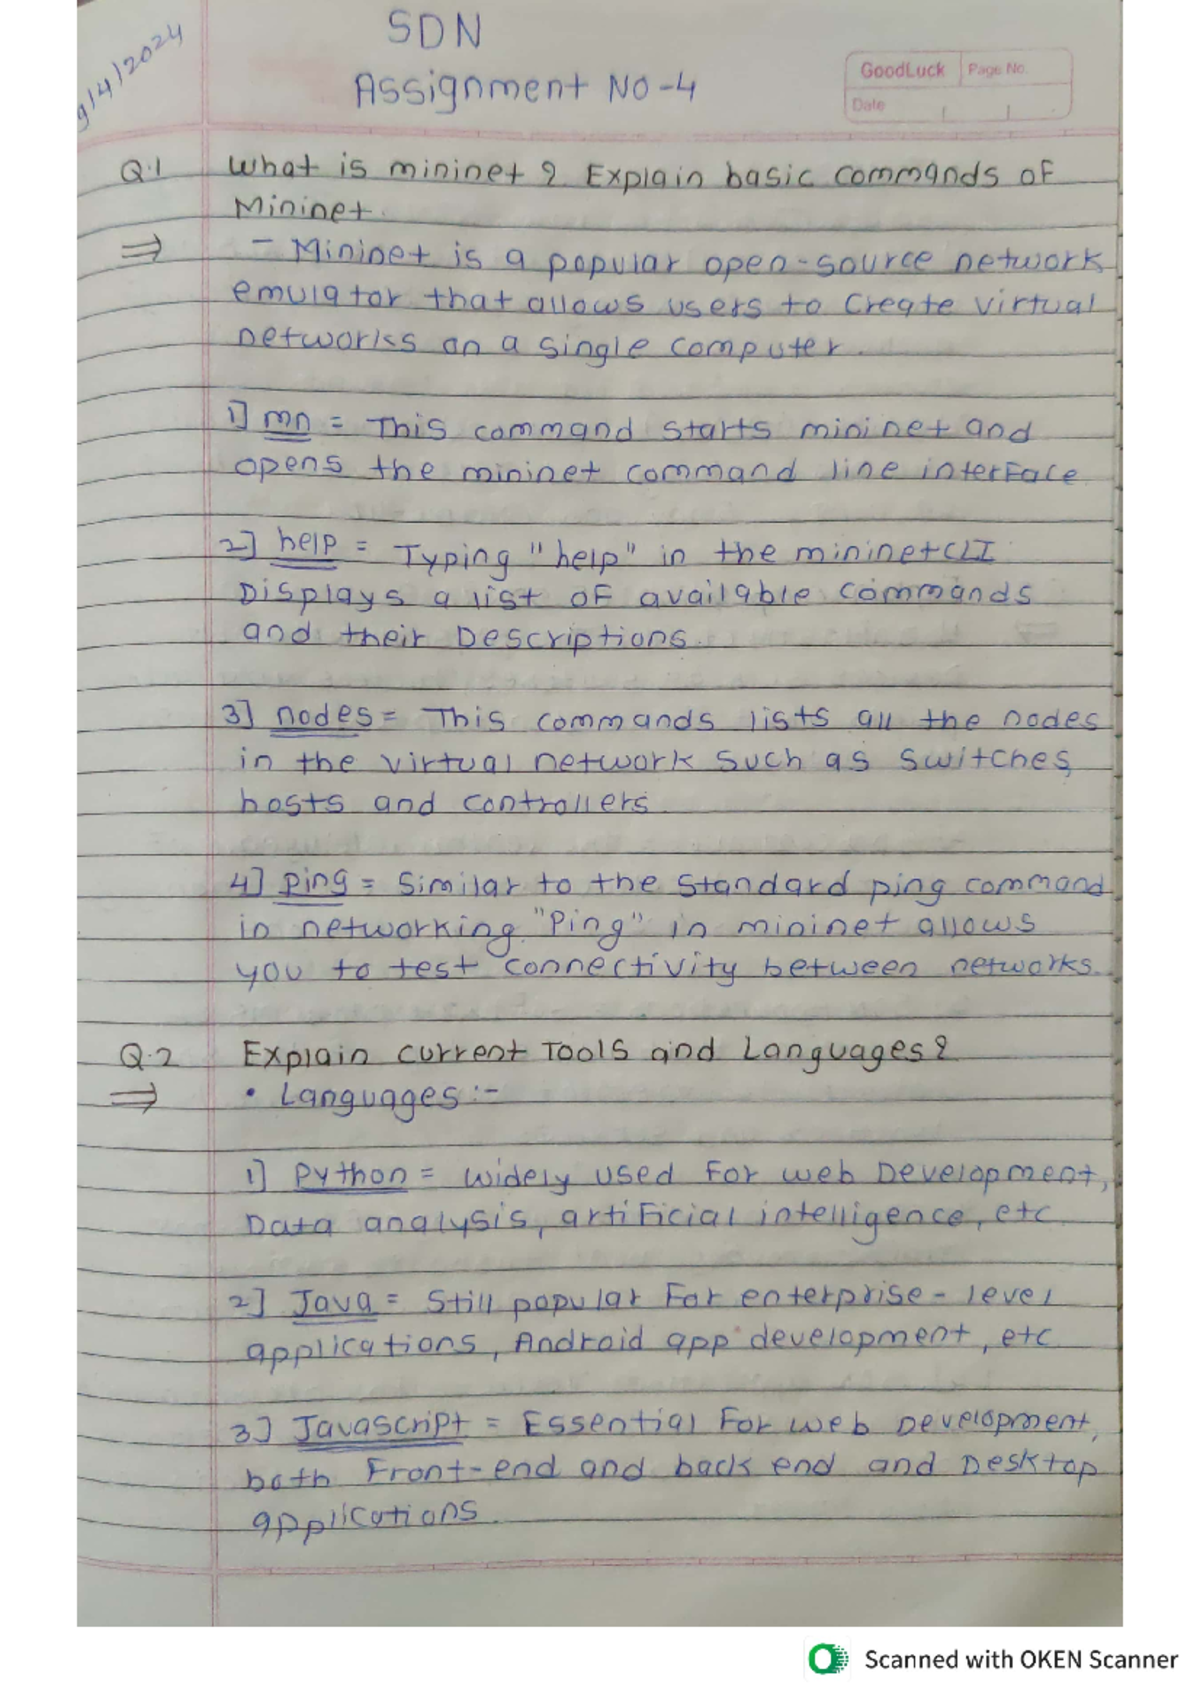 9/4/2024
SDN
Assignment No-4
GoodLuck Page No.
Date
Q.1 What is mininet ? Explain basic commands of
Mininet.
⇒ - Mininet is a popular open-source network
emulator that allows users to Create virtual
networks on a single computer.
1] mn = This command starts mininet and
opens the mininet command line interface
2] help = Typing "help" in the mininet CLI
Displays a list of available commands
and their Descriptions.
3] nodes = This commands lists all the nodes
in the virtual network such as switches,
hosts and controllers.
4] ping = Similar to the standard ping command
in networking. "Ping" in mininet allows
you to test connectivity between networks.
Q.2 Explain current Tools and Languages?
⇒ • Languages :-
1] Python = widely used for web Development,
Data analysis, artificial intelligence, etc
2] Java = Still popular for enterprise - level
applications, Android app development, etc
3] Javascript = Essential for web Development,
both Front-end and back end and Desktop
applications.
Scanned with OKEN Scanner